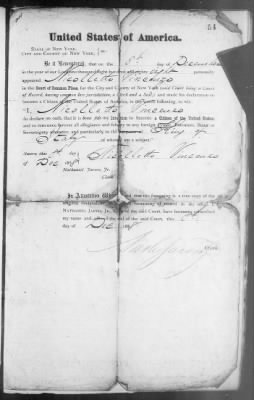 54
United States of America.
STATE OF NEW YORK,
CITY AND COUNTY OF NEW YORK,
Be it Remembered, that on the 8th day of December
in the year of our Lord one thousand eight hundred and personally
appeared Nicoletto Vincenzo
in the Court of Common Pleas, for the City and County of New York (said Court being a Court
of Record, having common law jurisdiction, a Clerk and a Seal), and made his declaration to
become a Citizen of the United States of America, in the words following, to wit:
I, Nicoletto Vincenzo
do declare on oath, that it is bona fide my intention to become a Citizen of the United States,
and to renounce forever all allegiance and fidelity to any foreign Prince, Potentate, State or
Sovereignty whatever, and particularly to the King of
Italy of whom I am a subject.
Sworn this 8th
day of Dec 188 Nicoletto Vincenzo
Nathaniel Jarvis, Jr.
Clerk.
In Attestation Whereof, that the foregoing is a true copy of the
original declaration of intention remaining of record in my office, I,
NATHANIEL JARVIS, Jr., Clerk of the said Court, have hereunto subscribed
my name and affixed the seal of the said Court, this 8th
day of Dec 188
Clerk.